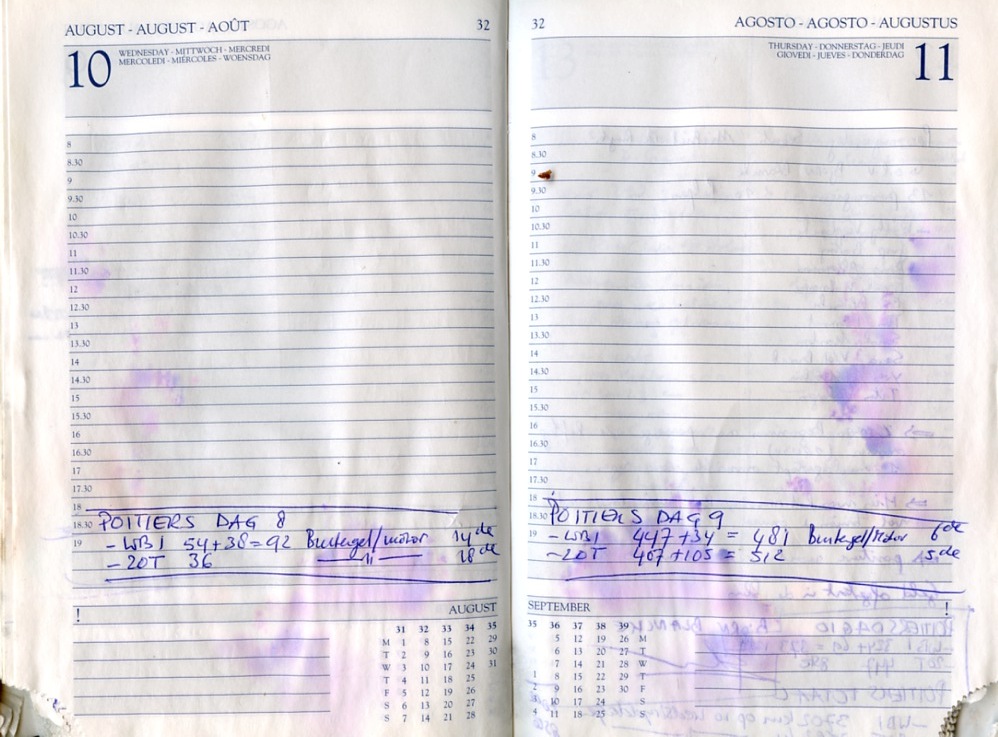 AUGUST - AUGUST - AOÛT 32
10 WEDNESDAY - MITTWOCH - MERCREDI
MERCOLEDI - MIERCOLES - WOENSDAG
8
8.30
9
9.30
10
10.30
11
11.30
12
12.30
13
13.30
14
14.30
15
15.30
16
16.30
17
17.30
18
18.30 POITIERS DAG 8
19 - WB1 54+38=92 /motor 14de
- 20T 36 —— 11 —— 18de
!
AUGUST
31 32 33 34 35
M 1 8 15 22 29
T 2 9 16 23 30
W 3 10 17 24 31
T 4 11 18 25
F 5 12 19 26
S 6 13 20 27
S 7 14 21 28
32 AGOSTO - AGOSTO - AUGUSTUS
THURSDAY - DONNERSTAG - JEUDI 11
GIOVEDI - JUEVES - DONDERDAG
8
8.30
9
9.30
10
10.30
11
11.30
12
12.30
13
13.30
14
14.30
15
15.30
16
16.30
17
17.30
18
18.30 POITIERS DAG 9
19 - WB1 447+34 = 481 /Motor 6de
- 20T 407+105 = 512 5de
SEPTEMBER !
35 36 37 38 39
5 12 19 26 M
6 13 20 27 T
7 14 21 28 W
1 8 15 22 29 T
2 9 16 23 30 F
3 10 17 24 S
4 11 18 25 S